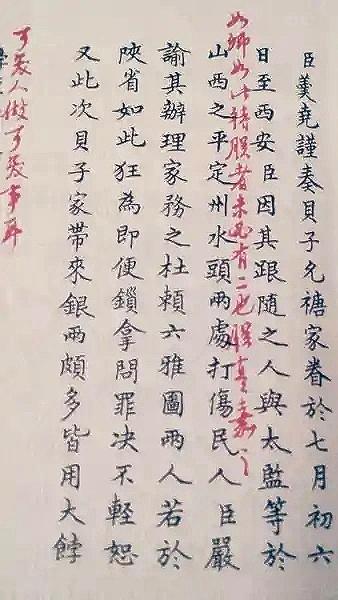 臣羹堯謹奏貝子允禟家眷於七月初六
日至西安臣因其跟隨之人與太監等於
如卿如此待朕者未見有二也朕真
山西之平定州水頭兩處打傷民人臣嚴
諭其辦理家務之杜賴六雅圖兩人若於
陝省如此狂為即便鎖拿問罪决不輕恕
又此次貝子家帶來銀兩頗多皆用大馞
人做事耳